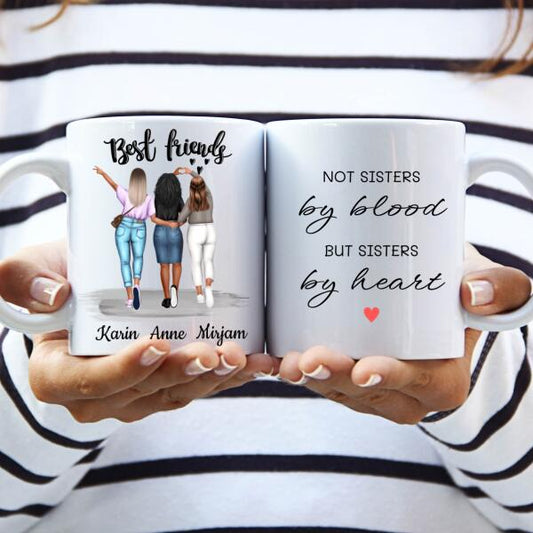 Best friends
Karin Anne Mirjam
NOT SISTERS
by blood
BUT SISTERS
by heart